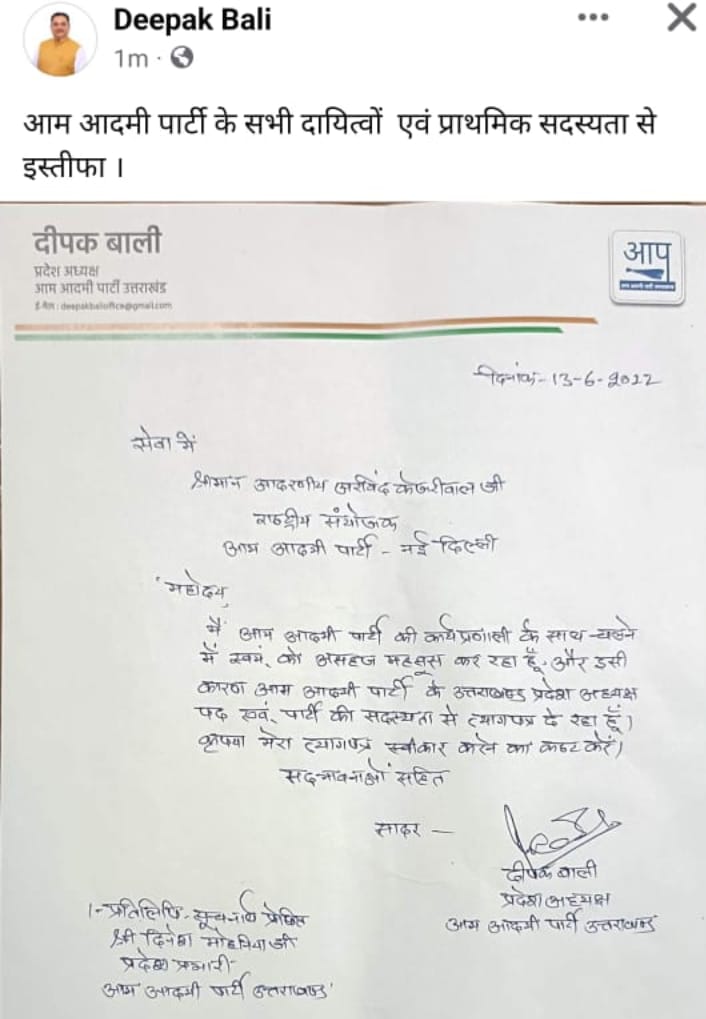 Deepak Bali
1m
आम आदमी पार्टी के सभी दायित्वों एवं प्राथमिक सदस्यता से
इस्तीफा ।
दीपक बाली
प्रदेश अध्यक्ष
आम आदमी पार्टी उत्तराखंड
ई-मेल : deepakbalioffice@gmail.com
आप
दिनांक- 13-6-2022
सेवा में
श्रीमान आदरणीय अरविंद केजरीवाल जी
राष्ट्रीय संयोजक
आम आदमी पार्टी - नई दिल्ली
महोदय,
मैं आम आदमी पार्टी की कार्यप्रणाली के साथ चलने
में स्वयं को असहज महसूस कर रहा हूँ, और इसी
कारण आम आदमी पार्टी के उत्तराखण्ड प्रदेश अध्यक्ष
पद एवं पार्टी की सदस्यता से त्यागपत्र दे रहा हूँ।
कृपया मेरा त्यागपत्र स्वीकार करने का कष्ट करें।
सद्भावनाओं सहित
सादर —
दीपक बाली
प्रदेश अध्यक्ष
आम आदमी पार्टी उत्तराखण्ड
1- प्रतिलिपि- सूचनार्थ प्रेषित
श्री दिनेश मोहनिया जी
प्रदेश प्रभारी
आम आदमी पार्टी उत्तराखण्ड